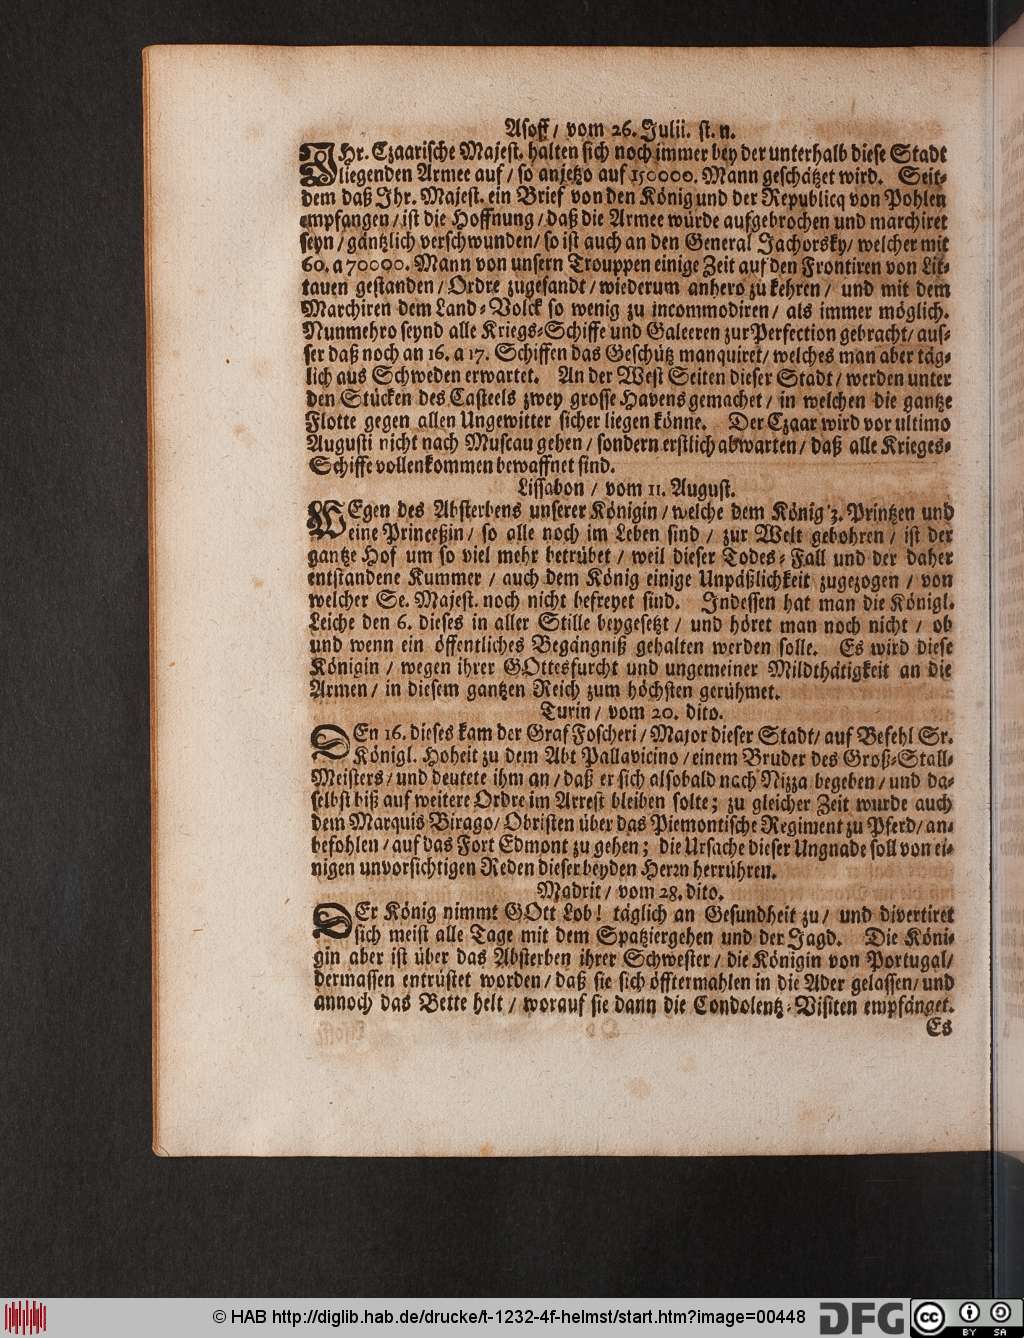 Asoff / vom 26. Julii. st. n.
IHr. Czaarische Majest. halten sich noch immer bey der unterhalb diese Stadt
liegenden Armee auf / so anjetzo auf 150000. Mann geschätzet wird. Seit-
dem daß Ihr. Majest. ein Brief von den König und der Republicq von Pohlen
empfangen / ist die Hoffnung / daß die Armee würde aufgebrochen und marchiret
seyn / gäntzlich verschwunden / so ist auch an den General Jachorsky / welcher mit
60. a 70000. Mann von unsern Trouppen einige Zeit auf den Frontiren von Lit-
tauen gestanden / Ordre zugesandt / wiederum anhero zu kehren / und mit dem
Marchiren dem Land-Volck so wenig zu incommodiren / als immer möglich.
Nunmehro seynd alle Kriegs-Schiffe und Galeeren zur Perfection gebracht / aus-
ser daß noch an 16. a 17. Schiffen das Geschütz manquiret / welches man aber täg-
lich aus Schweden erwartet. An der West Seiten dieser Stadt / werden unter
den Stücken des Casteels zwey grosse Havens gemachet / in welchen die gantze
Flotte gegen allen Ungewitter sicher liegen könne. Der Czaar wird vor ultimo
Augusti nicht nach Muscau gehen / sondern erstlich abwarten / daß alle Krieges-
Schiffe vollenkommen bewaffnet sind.
Lissabon / vom 11. August.
WEgen des Absterbens unserer Königin / welche dem König 3. Printzen und
eine Princeßin / so alle noch im Leben sind / zur Welt gebohren / ist der
gantze Hof um so viel mehr betrübet / weil dieser Todes-Fall und der daher
entstandene Kummer / auch dem König einige Unpäßlichkeit zugezogen / von
welcher Se. Majest. noch nicht befreyet sind. Indessen hat man die Königl.
Leiche den 6. dieses in aller Stille beygesetzt / und höret man noch nicht / ob
und wenn ein öffentliches Begängniß gehalten werden solle. Es wird diese
Königin / wegen ihrer GOttesfurcht und ungemeiner Mildthätigkeit an die
Armen / in diesem gantzen Reich zum höchsten gerühmet.
Turin / vom 20. dito.
DEn 16. dieses kam der Graf Foscheri / Major dieser Stadt / auf Befehl Sr.
Königl. Hoheit zu dem Abt Pallavicino / einem Bruder des Groß-Stall-
Meisters / und deutete ihm an / daß er sich alsobald nach Nizza begeben / und da-
selbst biß auf weitere Ordre im Arrest bleiben solte; zu gleicher Zeit wurde auch
dem Marquis Birago / Obristen über das Piemontische Regiment zu Pferd / an-
befohlen / auf das Fort Edmont zu gehen; die Ursache dieser Ungnade soll von ei-
nigen unvorsichtigen Reden dieser beyden Herrn herrühren.
Madrit / vom 28. dito.
DEr König nimmt GOtt Lob! täglich an Gesundheit zu / und divertiret
sich meist alle Tage mit dem Spatziergehen und der Jagd. Die Köni-
gin aber ist über das Absterben ihrer Schwester / die Königin von Portugal /
dermassen entrüstet worden / daß sie sich öfftermahlen in die Ader gelassen / und
annoch das Bette helt / worauf sie dann die Condolentz-Visiten empfänget.
Es
© HAB http://diglib.hab.de/drucke/t-1232-4f-helmst/start.htm?image=00448
DFG
cc BY SA